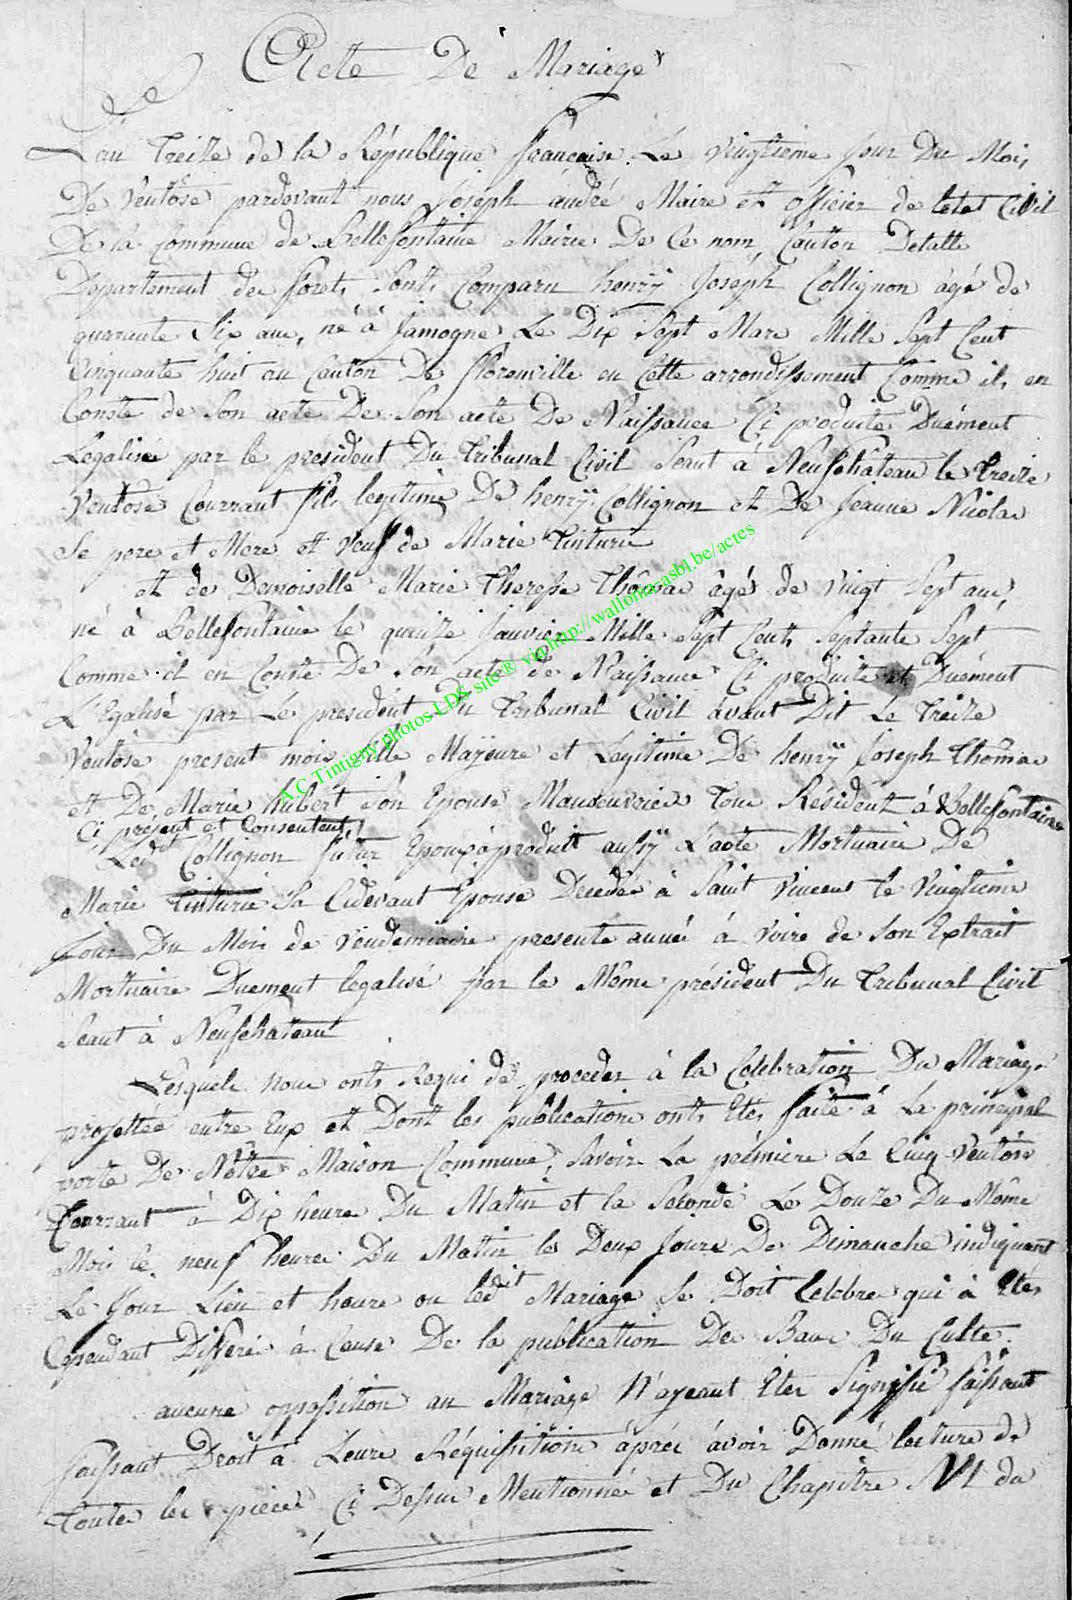 Acte De Mariage
De
L'an treize de la République française Le vingtieme jour Du Mois,
De Ventôse pardevant nous Joseph andré Maire et officier de letat Civil
De la Commune de Bellefontaine Mairie De Ce nom Canton Detalle
Departement des forets Sont Comparu henrÿ Joséph Collignon âgé de
quarante Six ans, né à Jamogne Le Dix Sept Mars Mille Sept Cent
Cinquante huit au Canton De florenville en Cette arrondissement Comme il en
Conste de Son acte De Son acte De Naissance Ci produite Duement
Legalisée par le president Du Tribunal Civil Seant à Neufchâteau le treize
Ventôse Courrant fils legitime De henrÿ Collignon et De Jeanne Nicolas
Se pere et Mere et veuf de Marie Tinturie
et de Demoiselle Marie Therese Thomas âgé de vingt Sept ans,
né à Bellefontaine le quinze Janvier Mille Sept Cent Septante Sept
Comme il en Conste De Son acte de Naissance Ci produite et Duement
L'Egalisé par Le president Du Tribunal Civil avant Dit Le treize
Ventôse present mois, fille Majeure et Legitime De henrÿ Joseph Thomas
et De Marie hubert Son Epouse Manoeuvrier tous Résident à Bellefontaine
Ci present et Consentent,
Ledit Collignon futur Epoux à produit aussÿ L'acte Mortuaire De
Marie Tinturie Sa Cidevant Epouse Decedée à Saint Vincent le Vingtieme
Jour Du Mois de Vendemiaire presente année à Voire de Son Extrait
Mortuaire Duement legalisé par le Même président Du Tribunal Civil
Seant à Neufchateau
Lesquels nous ont Requi de proceder à la Celebration Du Mariage
projettée entre Eux et Dont les publications onts Etés faite à La principal
porte De Nôtre Maison Commune, Savoir La première Le Cinq Ventôse
Courrant à Dix heures Du Matin et la Seconde Le Douze Du Même
Mois le neuf heures Du Mattin les Deux Jours De Dimanche indiquant
Le Jour Lieu et heure ou ledit Mariage Se Doit Celebre qui à Etés
Cependant Differé à Cause De la publication De Bans Du Culte.
aucune opposition au Mariage N'ayeant Eter Signifié faissant
faissant Droit à Leurs Réquisitions àprés àvoir Donné lecture de
Toutes les pieces Ci Dessus Mentionnée et Du Chapitre VI du
A.C Tintigny photos LDS site® via http://wallonia-asbl.be/actes